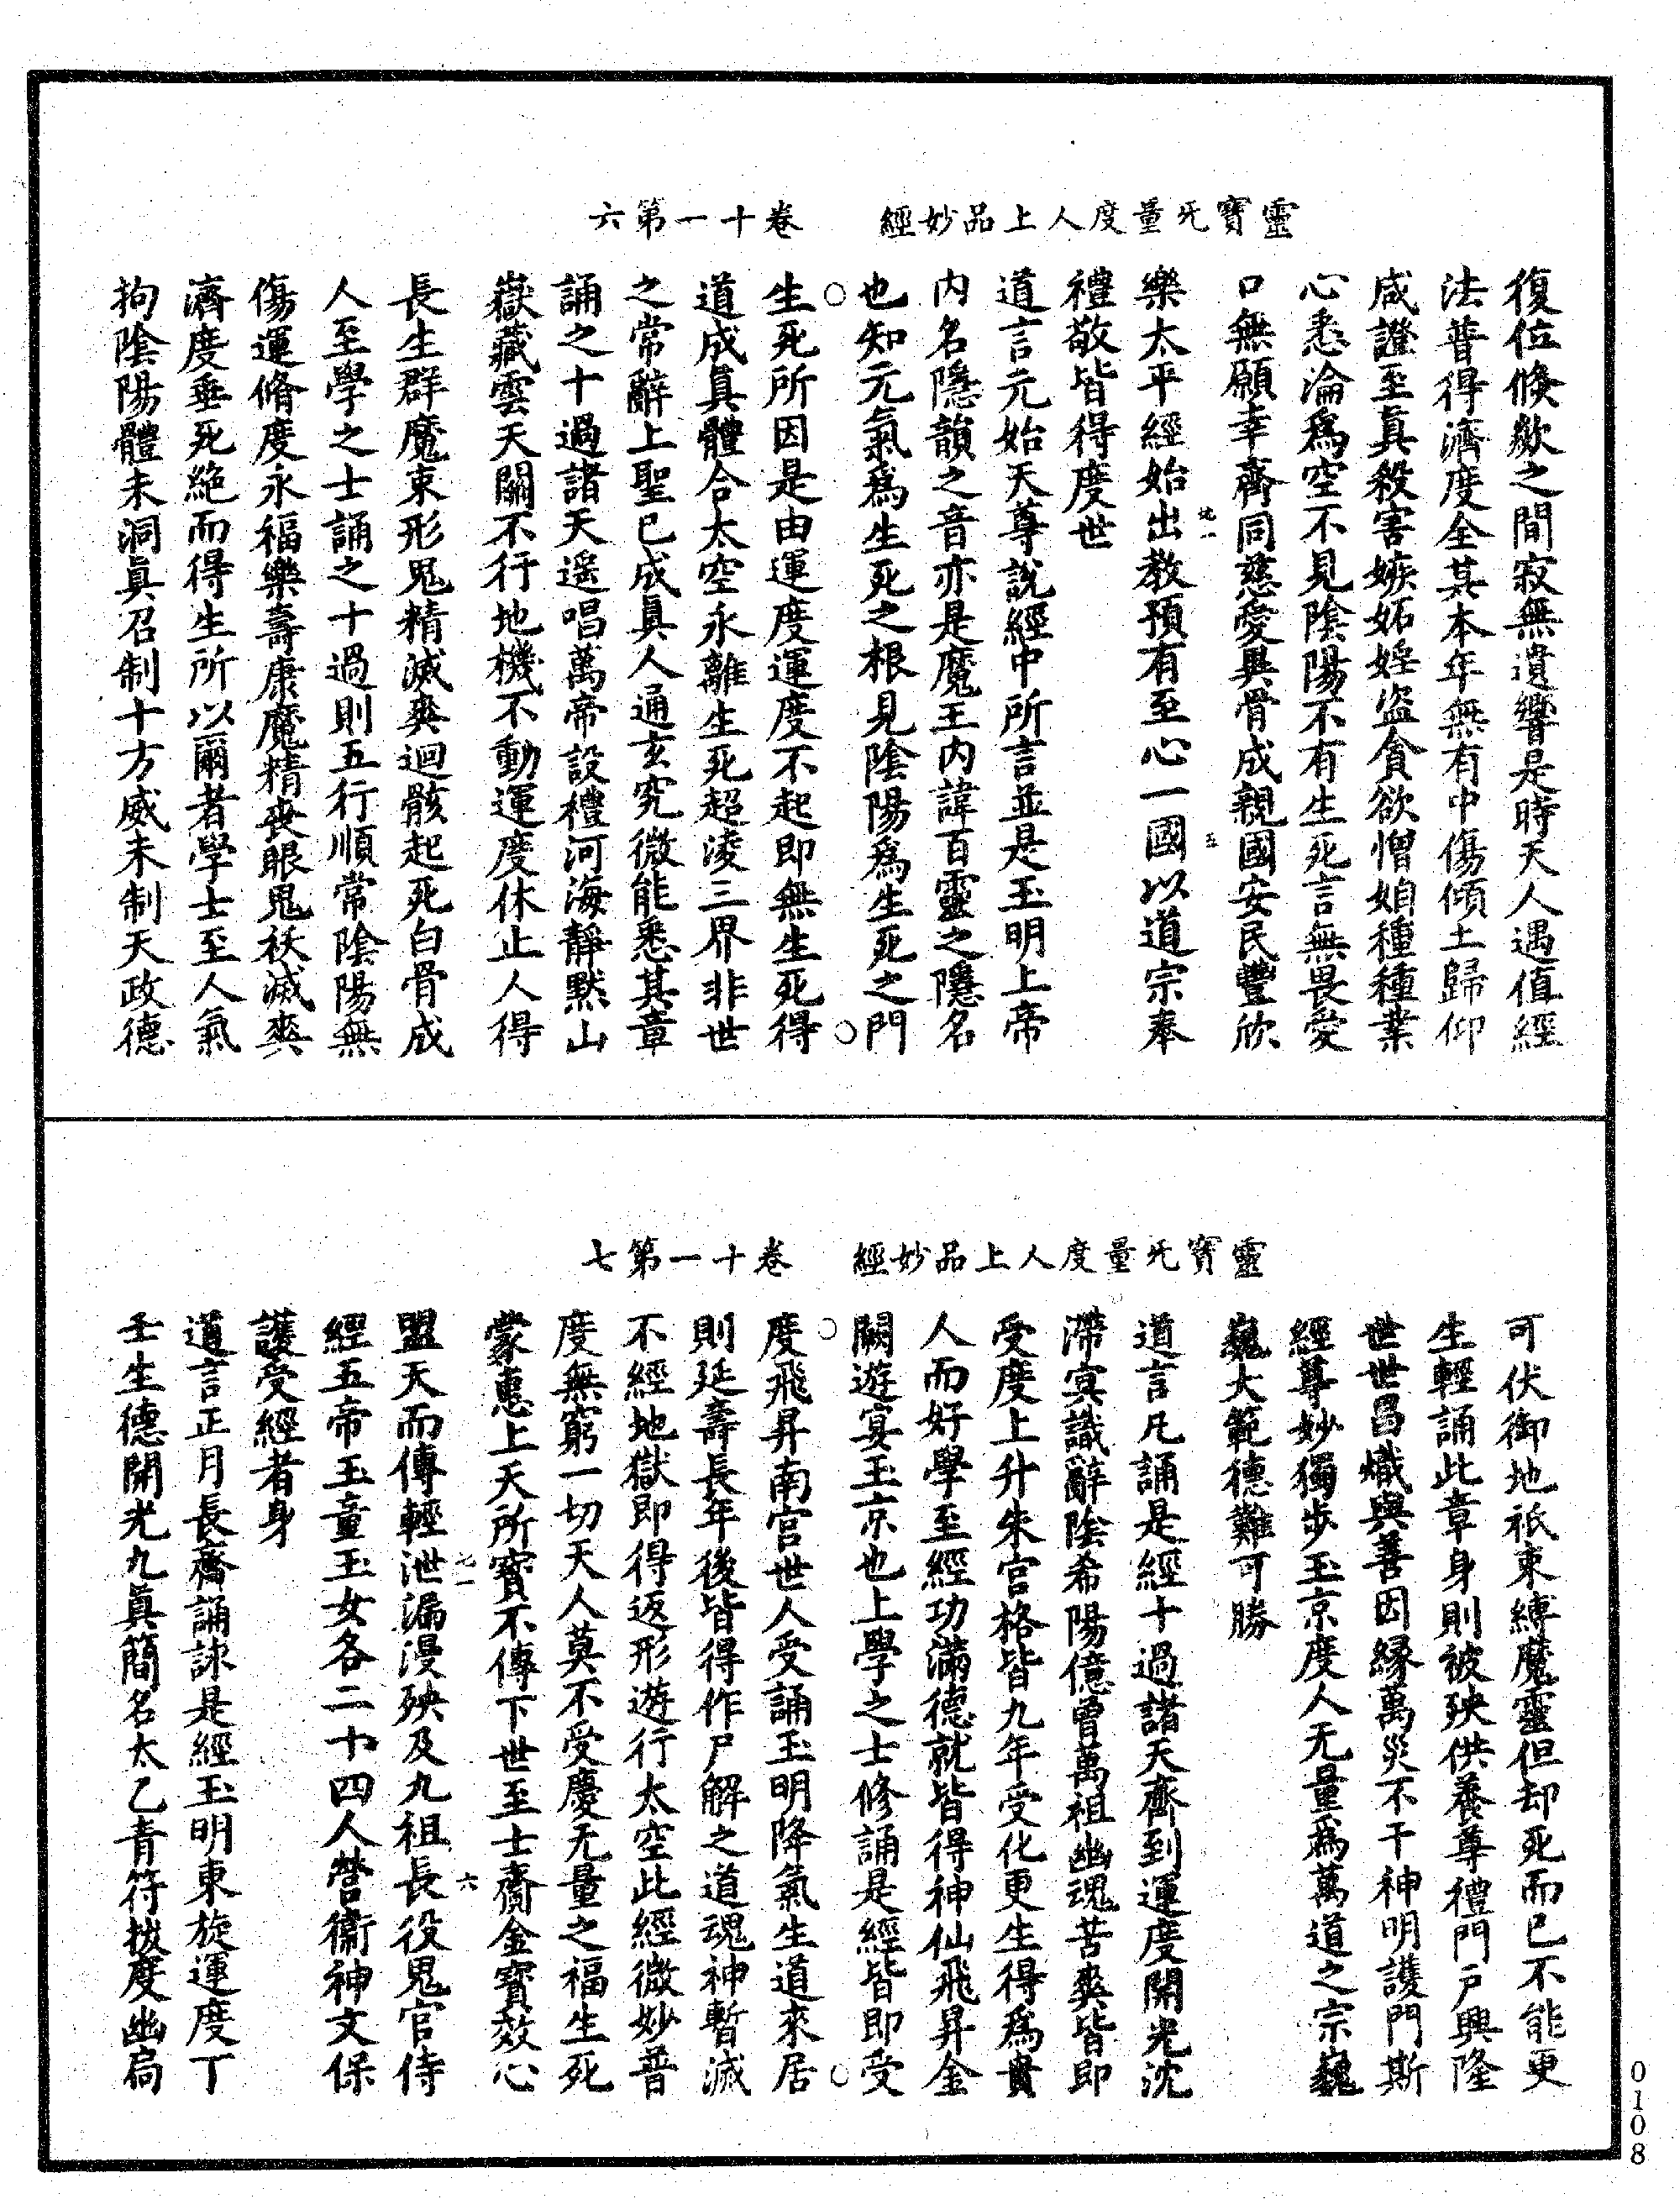 靈寶无量度人上品妙經　卷十一第六
復位倏歘之間寂無遺響是時天人遇值經
法普得濟度全其本年無有中傷傾土歸仰
咸證至眞殺害嫉妬婬盜貪欲憎妲種種業
心悉淪爲空不見陰陽不有生死言無畏愛
口無願幸齊同慈愛異骨成親國安民豐欣
樂太平經始出教預有至心一國以道宗奉
禮敬皆得度世
道言元始天尊說經中所言並是玉明上帝
内名隱韻之音亦是魔王内諱百靈之隱名
也知元氣爲生死之根見陰陽爲生死之門
生死所因是由運度運度不起即無生死得
道成眞體合太空永離生死超淩三界非世
之常辭上聖已成眞人通玄究微能悉其章
誦之十過諸天遥唱萬帝設禮河海靜默山
嶽藏雲天關不行地機不動運度休止人得
長生群魔束形鬼精滅爽迴骸起死白骨成
人至學之士誦之十過則五行順常陰陽無
傷運脩度永福樂壽康魔精喪眼鬼祅滅爽
濟度垂死絶而得生所以爾者學士至人氣
拘陰陽體未洞眞召制十方威未制天政德
靈寶无量度人上品妙經　卷十一第七
可伏御地祇束縛魔靈但却死而已不能更
生輕誦此章身則被殃供養尊禮門戶興隆
世世昌熾與善因緣萬災不干神明護門斯
經尊妙獨步玉京度人无量爲萬道之宗巍
巍大範德難可勝
道言凡誦是經十過諸天齊到運度開光沈
滯㝠識辭陰希陽億曾萬祖幽魂苦爽皆即
受度上升朱宮格皆九年受化更生得爲貴
人而好學至經功滿德就皆得神仙飛昇金
闕遊宴玉京也上學之士修誦是經皆即受
度飛昇南宫世人受誦玉明降氣生道來居
則延壽長年後皆得作尸解之道魂神暫滅
不經地獄即得返形遊行太空此經微妙普
度無窮一切天人莫不受慶无量之福生死
蒙惠上天所寶不傳下世至士齎金寶效心
盟天而傳輕泄漏漫殃及九祖長役鬼官侍
經五帝玉童玉女各二十四人營衞神文保
護受經者身
道言正月長齋誦詠是經玉明東旋運度丁
壬生德開光九眞簡名太乙青符拔度幽扃
0108